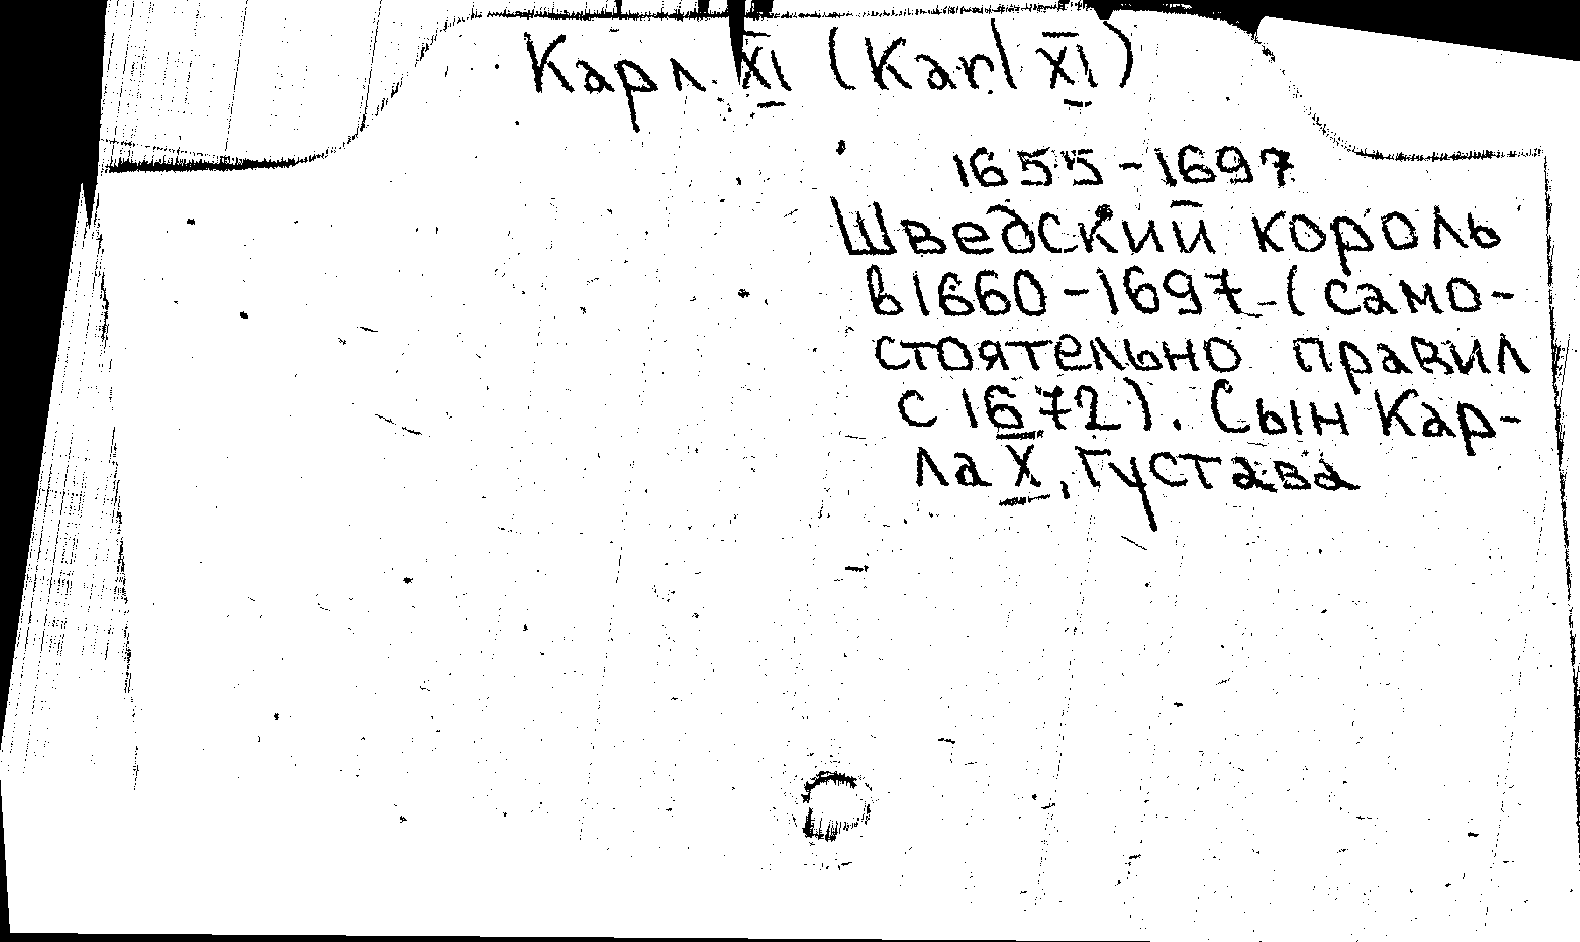 Карл XI (Karl XI)
1655-1697
Шведский король
в 1660-1697 (само-
стоятельно правил
с 1672). Сын Кар-
ла X, Густава